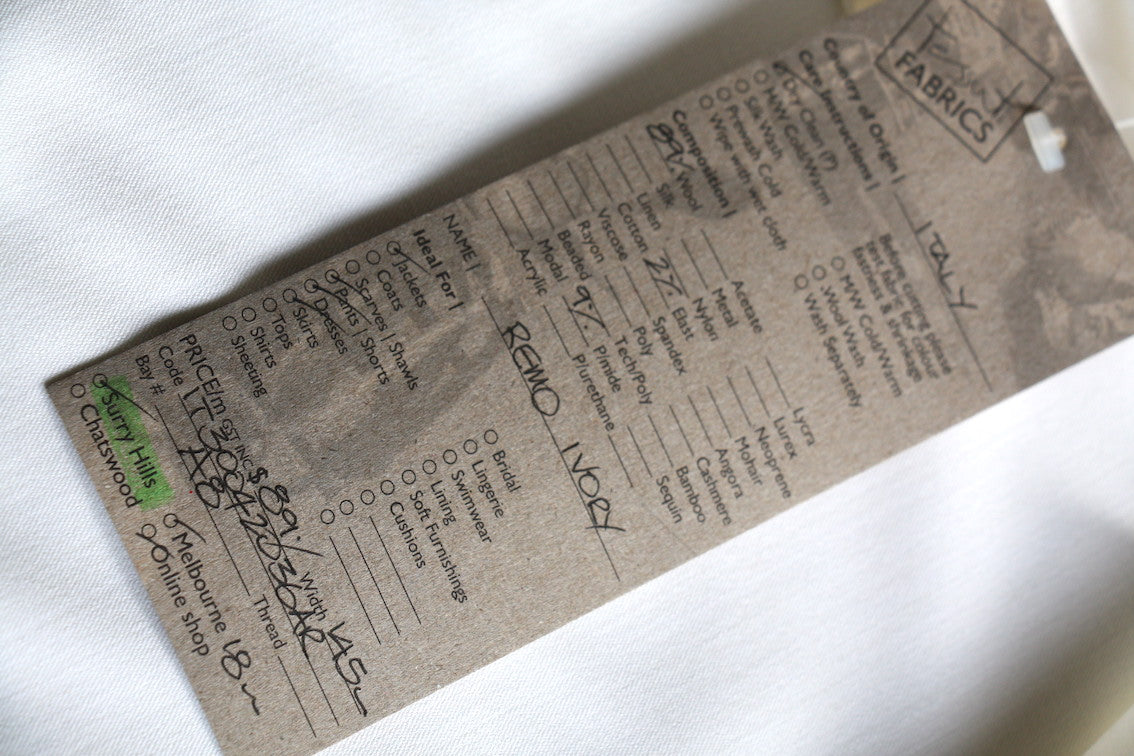 FABRICS
Country of Origin | ITALY
Care Instructions |
Dry Clean (P)
M/W Cold/Warm
Silk Wash
Prewash Cold
Wipe with wet cloth
Before cutting please
test fabric for colour
fastness & shrinkage
M/W Cold/Warm
Wool Wash
Wash Separately
Composition |
89% Wool
Silk
Linen
Cotton
Viscose
Rayon
Beaded
Modal
Acrylic
Acetate
Metal
Nylon
2% Elast
Spandex
Poly
Tech/Poly
9% P/mide
P/urethane
Lycra
Lurex
Neoprene
Mohair
Angora
Cashmere
Bamboo
Sequin
NAME | REMO IVORY
Ideal For |
Jackets
Coats
Scarves | Shawls
Pants | Shorts
Dresses
Skirts
Tops
Shirts
Sheeting
Bridal
Lingerie
Swimwear
Lining
Soft Furnishings
Cushions
PRICE/m GST INC $89./ Width 145
Code
Bay # A8 Thread
Surry Hills
Chatswood
Melbourne 18m
Online shop